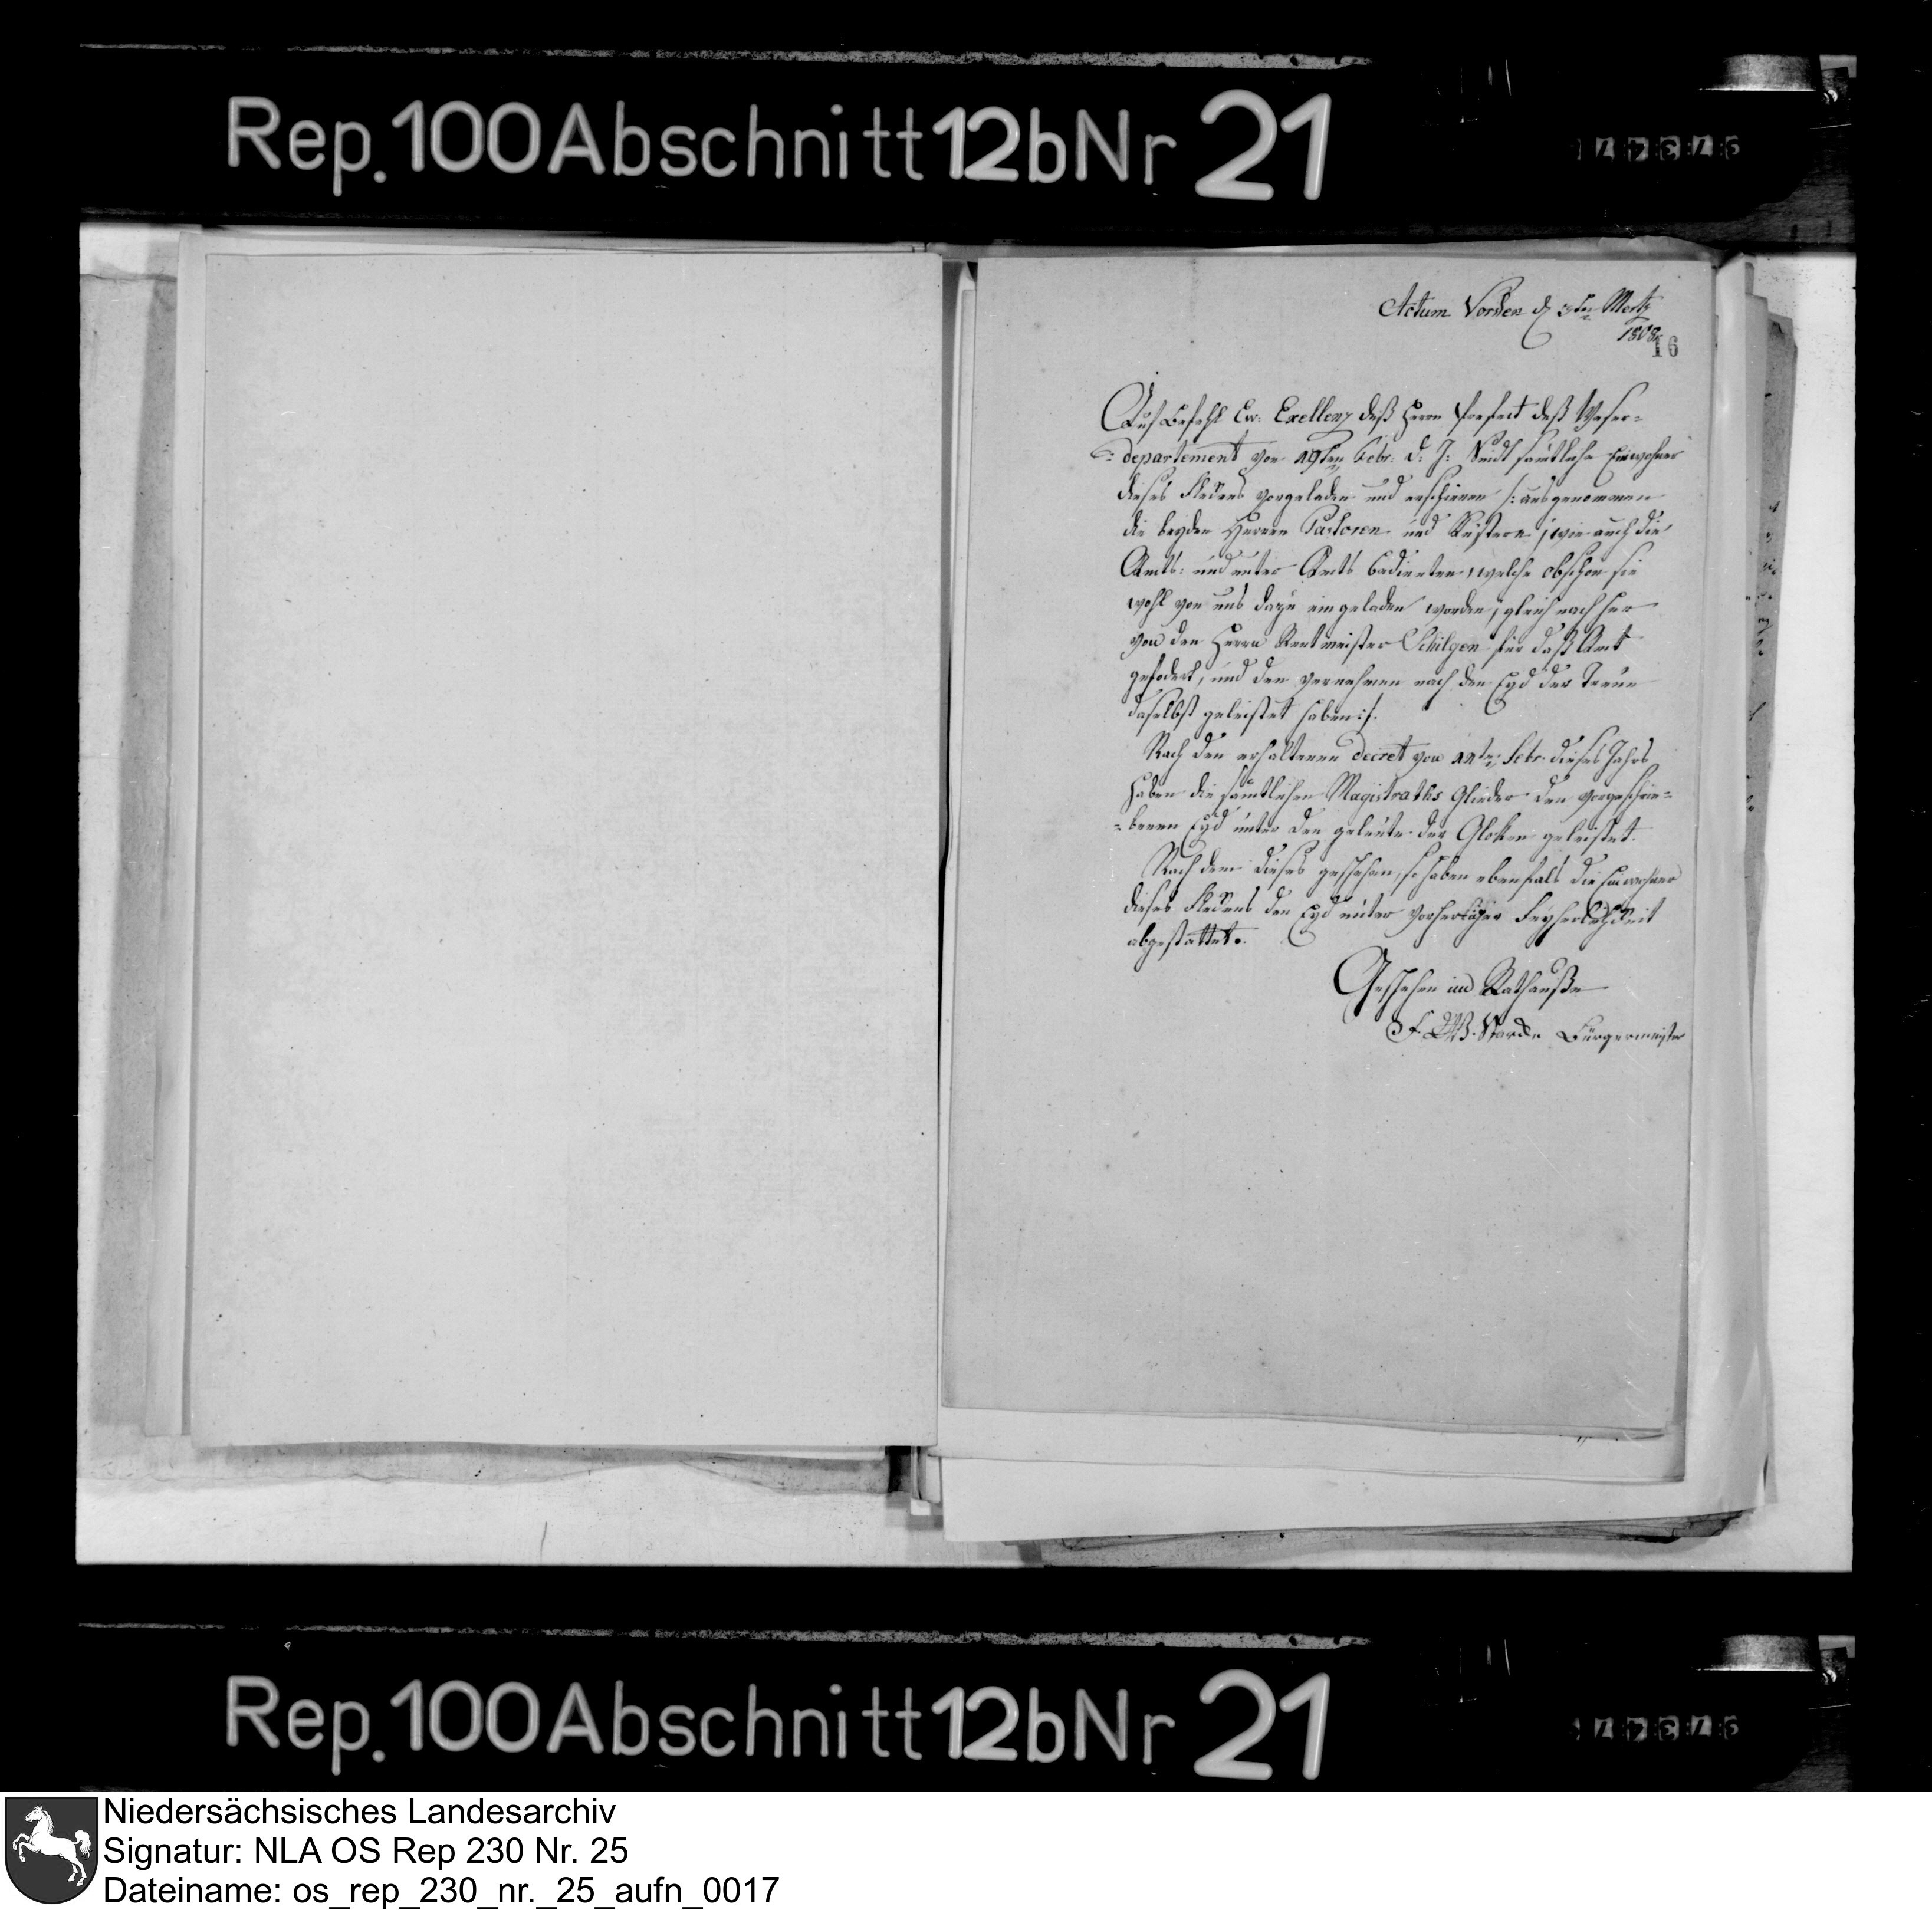 Rep. 100 Abschnitt 12b Nr 21
Actum Vörden d 3ten Mertz
1808
16
Auf Befehl Ew: Exellenz deß Herrn Praefect deß Weser-
= departement von 19ten Febr: d: J: Sindt sämtliche Einwohner
dieses Fleckens vorgeladen und erschienen /: ausgenommen
die beyden Herren Pastoren und Küstern, wie auch die
Amts: und unter Amts bedienten, welche obschon sie
wohl von uns dazu eingeladen worden, gleich nach her
von den Herrn Rentmeister Schilgen für daß Amt
gefodert, und den vernehmen nach den Eyd der Treue
daselbst geleistet haben :/.
Nach den erhaltenen decret von 11ten Febr. dieses Jahrs
haben die sämtlichen Magistraths Glieder den vorgeschrie=
= benen Eyd unter den geleute der Glocken geleistet.
Nach dem dieses geschehen, so haben ebenfals die Einwohner
dieses Fleckens den Eyd unter vorheriger Feyerlichkeit
abgestattet.
Geschehen im Rathauße
Bürgermeister
Rep. 100 Abschnitt 12b Nr 21
Niedersächsisches Landesarchiv
Signatur: NLA OS Rep 230 Nr. 25
Dateiname: os_rep_230_nr._25_aufn_0017